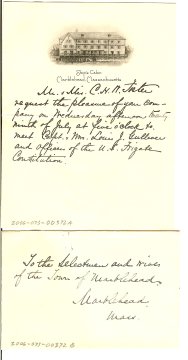 Marblehead, Massachusetts
Mr. & Mrs. C. H. W. Foster
request the pleasure of your com-
pany on Wednesday afternoon, Twenty
ninth of July, at five o'clock to
meet Capt. & Mrs. Louis J. Gulliver
and officers of the U.S. Frigate
Constitution
To the Selectmen and wives
of the Town of Marblehead,
Marblehead,
Mass.